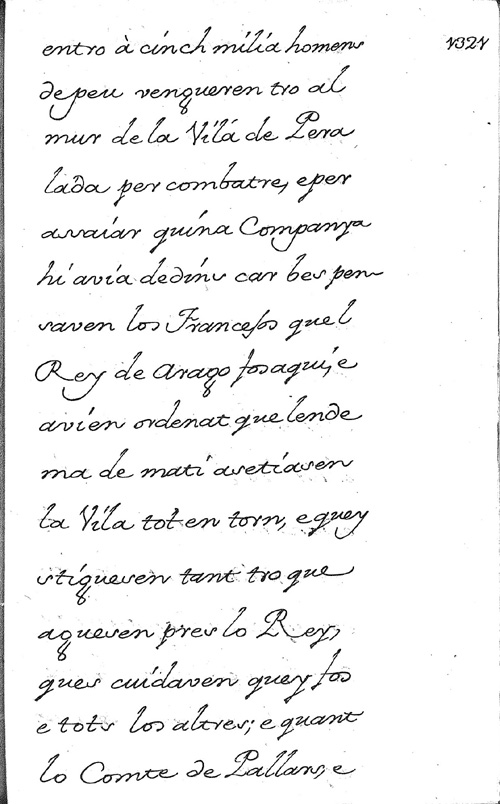 entro à cinch milia homens
1321
de peu vengueren tro al
mur de la Vila de Pera
lada per combatre, e per
assaiar quina Companya
hi avia dedins car bes pen-
saven los Francesos quel
Rey de Arago fos aqui, e
avien ordenat que lende
ma de mati asetiasen
la Vila tot en torn, e quey
stiguesen tant tro que
aguesen pres lo Rey,
ques cuidaven quey fos
e tots los altres; e quant
lo Comte de Pallars, e